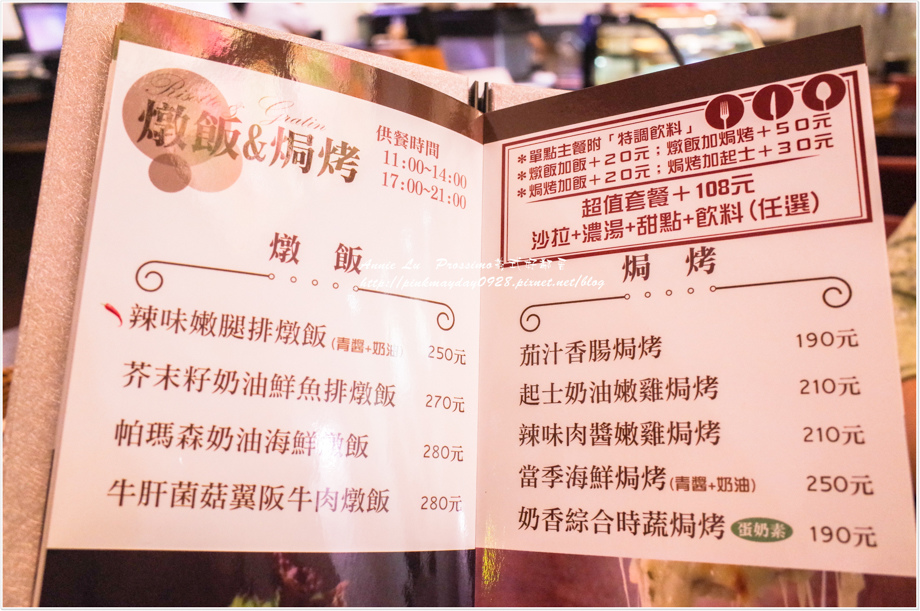 Risotto & Gratin
燉飯&焗烤
供餐時間
11:00~14:00
17:00~21:00
燉飯
辣味嫩腿排燉飯(青醬+奶油) 250元
芥末籽奶油鮮魚排燉飯 270元
帕瑪森奶油海鮮燉飯 280元
牛肝菌菇翼阪牛肉燉飯 280元
*單點主餐附「特調飲料」
*燉飯加飯+20元；燉飯加焗烤+50元
*焗烤加飯+20元；焗烤加起士+30元
超值套餐+108元
沙拉+濃湯+甜點+飲料(任選)
焗烤
茄汁香腸焗烤 190元
起士奶油嫩雞焗烤 210元
辣味肉醬嫩雞焗烤 210元
當季海鮮焗烤(青醬+奶油) 250元
奶香綜合時蔬焗烤 蛋奶素 190元
Annie Lu Prossimo
http://pinkmayday0928.pixnet.net/blog